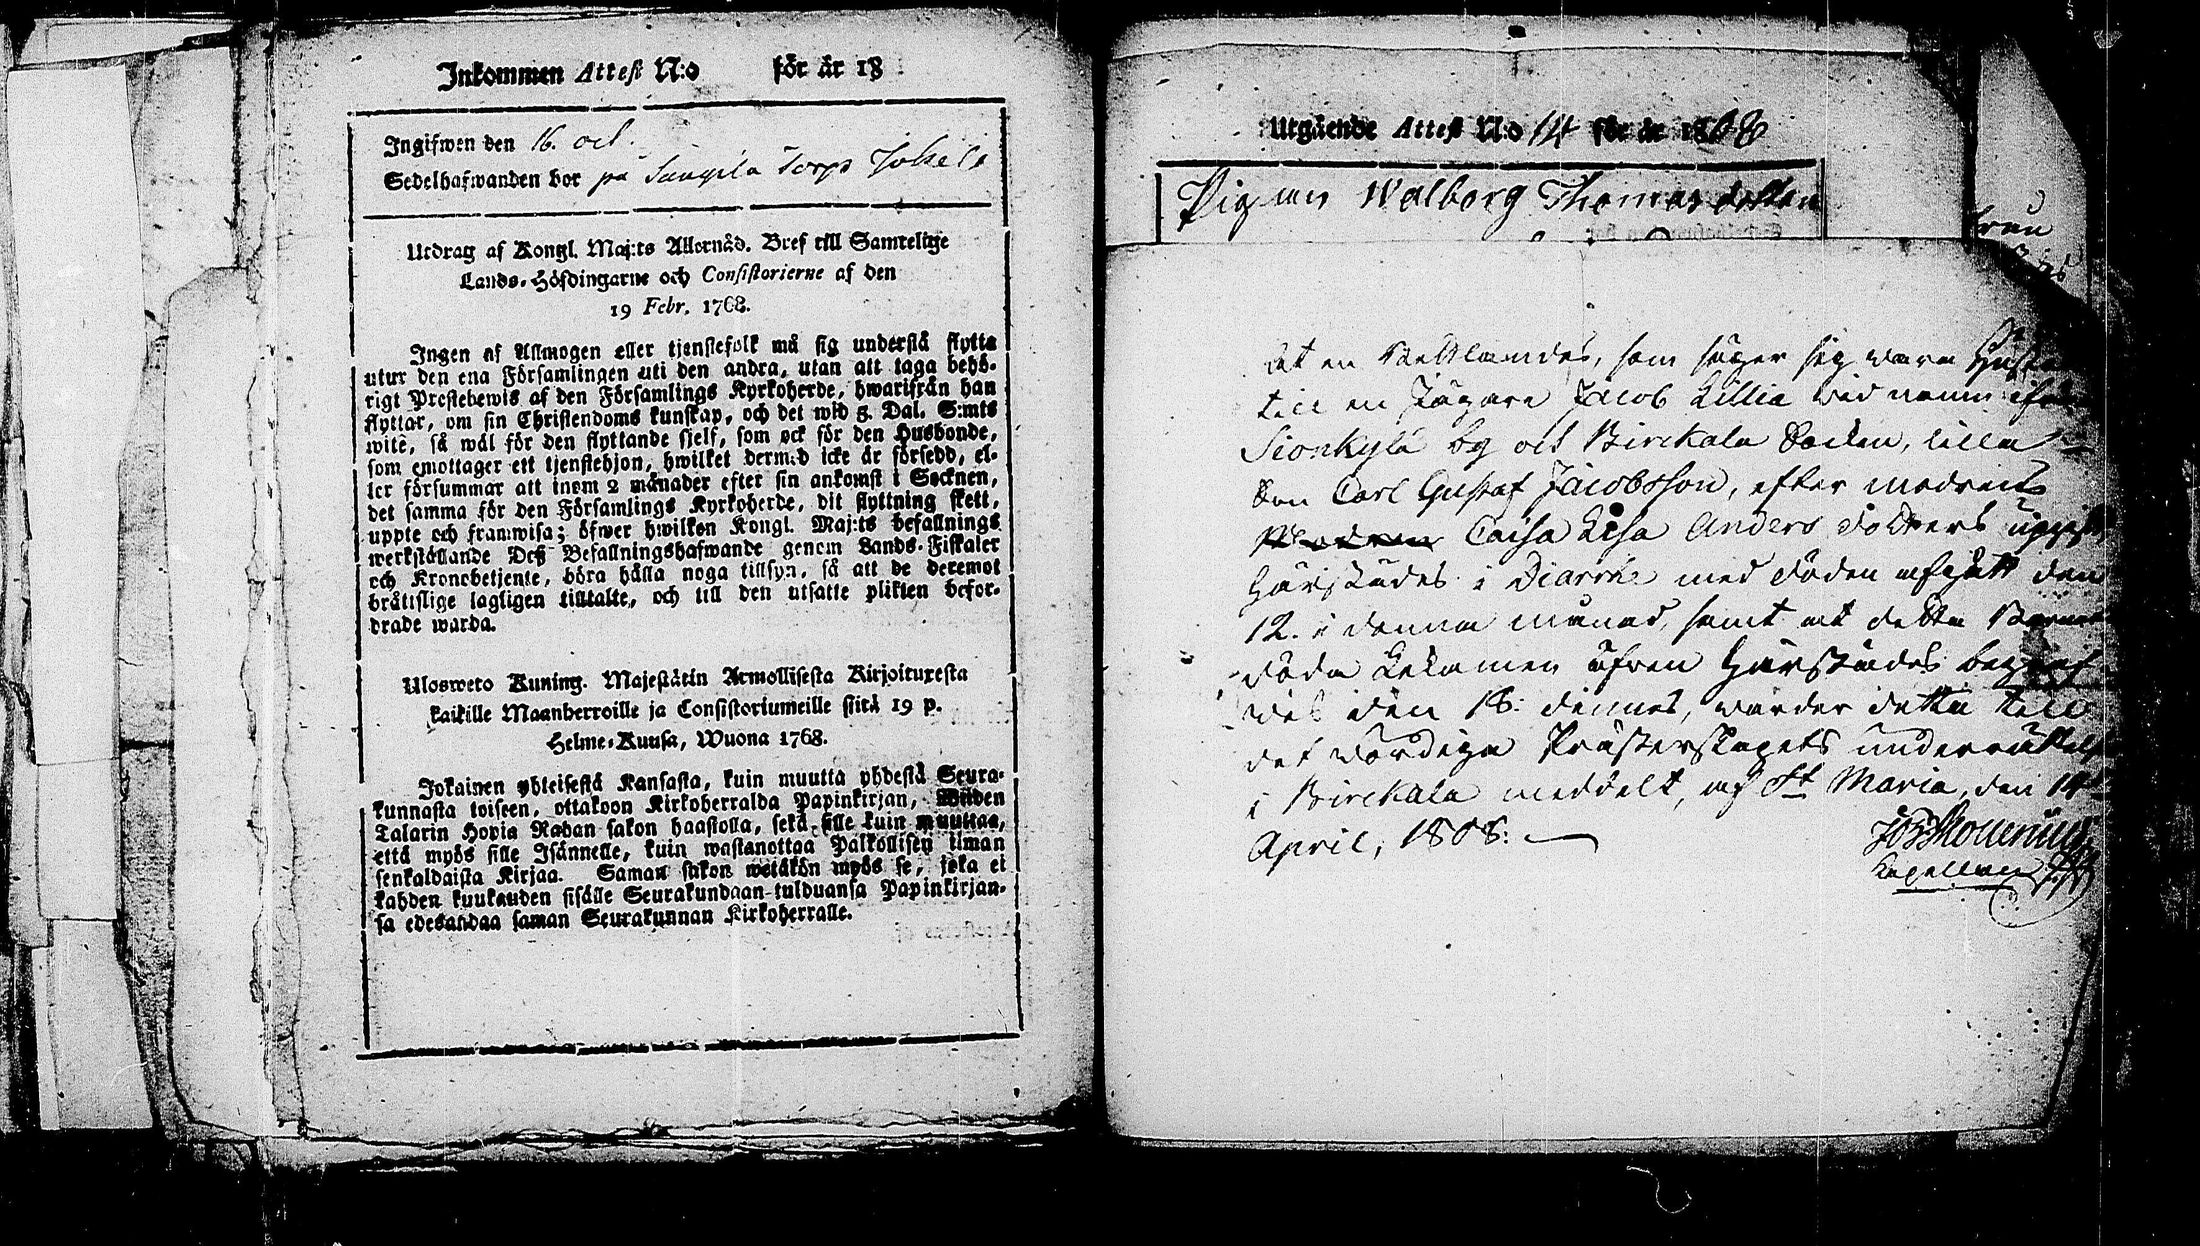 Inkommen Attest N:o för år 18
Ingifwen den 16. oct.
Sedelhafwanden bor på Torp Jokela
Utdrag af Kongl. Maj:ts Allernåd. Bref till Samtelige
Lands-Höfdingarne och Consistorierne af den
19 Febr. 1768.
Ingen af Allmogen eller tjenstefolk må sig understå flytta
utur den ena Församlingen uti den andra, utan att taga behö-
rigt Prestebewis af den Församlings Kyrkoherde, hwarifrån han
flyttar, om sin Christendoms kunskap, och det wid 5. Dal. S:mts
wite, så wäl för den flyttande sjelf, som ock för den Husbonde,
som emottager ett tjenstehjon, hwilket dermed icke är försedd, el-
ler försummar att inom 2 månader efter sin ankomst i Socknen,
det samma för den Församlings Kyrkoherde, dit flyttning skett,
uppte och framwisa; öfwer hwilken Kongl. Maj:ts befallnings
werkställande Deß Befallningshafwande genom Lands-Fiskaler
och Kronobetjente, böra hålla noga tillsyn, så att de deremot
bråttslige lagligen tilltalte, och till den utsatte plikten befor-
drade warda.
Ulosweto Kuning. Majestätin Armollisesta Kirjoituxesta
kaikille Maanherroille ja Consistoriumeille siitä 19 p.
Helme-Kuusa, Wuona 1768.
Jokainen yhteisestä Kansasta, kuin muutta yhdestä Seura-
kunnasta toiseen, ottakoon Kirkoherralda Papinkirjan, Wiiden
Talarin Hopia Rahan sakon haastolla, sekä sille kuin muuttaa,
että myös sille Isännelle, kuin wastanottaa Palkollisen ilman
senkaldaista Kirjaa. Saman sakon wetäkön myös se, joka ei
kahden kuukauden sisälle Seurakundaan tulduansa Papinkirjan-
sa edesandaa saman Seurakunnan Kirkoherralle.
Utgående Attest N:o 14 för år 1808
Pigan Walborg Thomasdotter
det en, som säger sig vara
till en Jägare Jacob Killia vid namn ifrån
Sionkylä by och Birckala Socken, lilla
Son Carl Gustaf Jacobsson, efter modrens
Caisa Lisa Andersdotters
härstädes i med döden afgått den
12. i denna månad, samt at detta Barnets
döda Lekamen äfven härstädes begraf-
vits den 18: dennes, varder detta till
det vördiga Prästerskapets underrättelse
i Birckala meddelt, af St Maria, den
April, 1808.
Kapellan